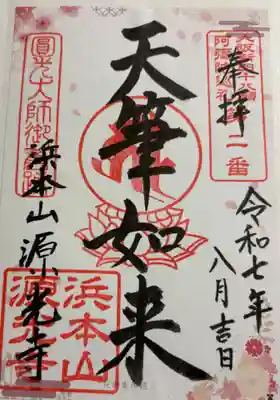 奉拝
令和七年
八月吉日
天筆如来
圓光大師御遺跡
浜本山源光寺
浜本山
源光寺
二番